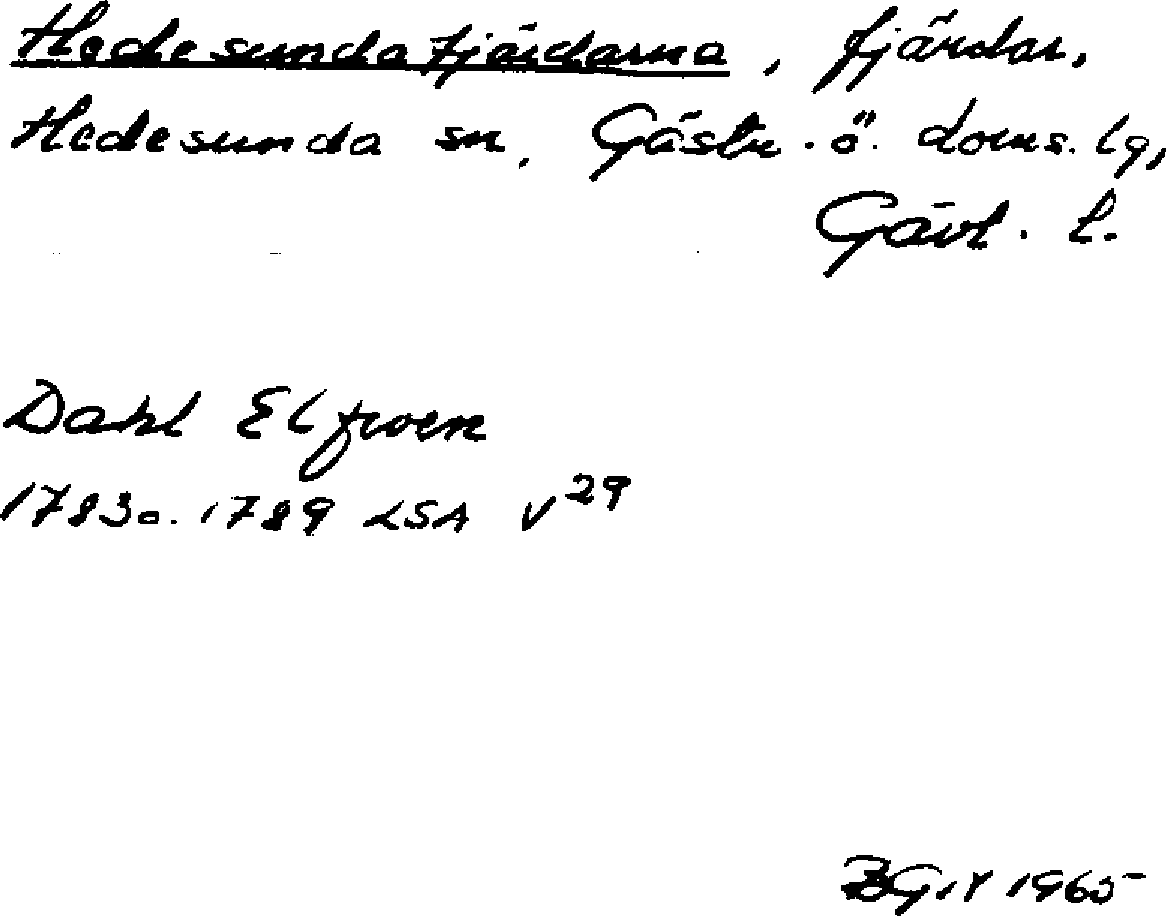 Hedesundafjärdarna, fjärdar,
Hedesunda sn, Gästr. ö. doms. lg,
Gävl. l.
Dahl Elfwen
1783 o. 1789 LSA V 29
1965